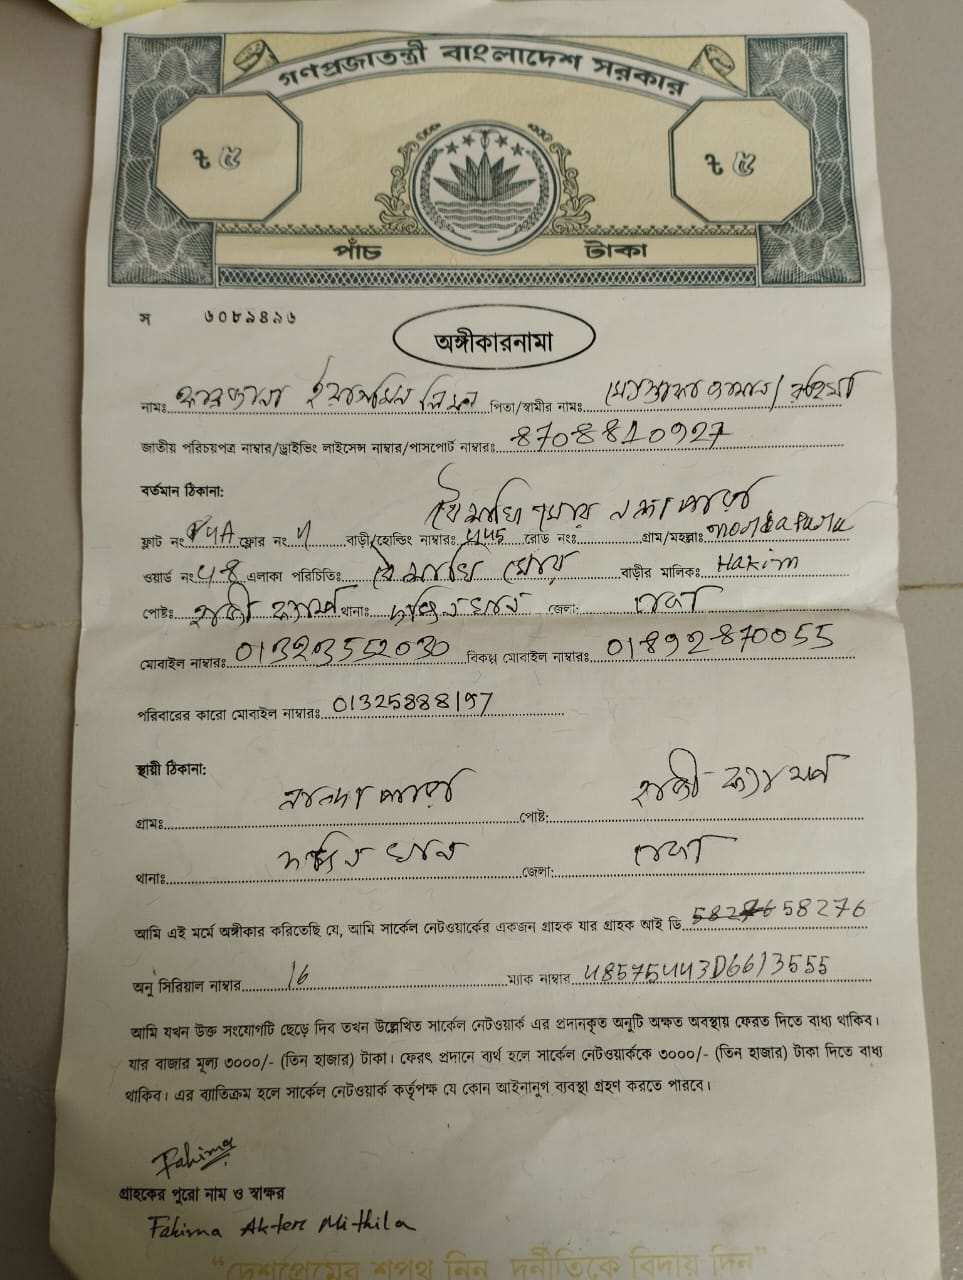 গণপ্রজাতন্ত্রী বাংলাদেশ সরকার
৳ ৫ ৳ ৫
পাঁচ টাকা
স ৬০৮৯৪৯৬
অঙ্গীকারনামা
নামঃ ইয়াসমিন পিতা/স্বামীর নামঃ
জাতীয় পরিচয়পত্র নাম্বার/ড্রাইভিং লাইসেন্স নাম্বার/পাসপোর্ট নাম্বারঃ 8708810927
বর্তমান ঠিকানা:
ফ্লাট নং ফ্লোর নং বাড়ী/হোল্ডিং নাম্বারঃ রোড নংঃ গ্রাম/মহল্লাঃ
ওয়ার্ড নংঃ এলাকা পরিচিতিঃ বাড়ীর মালিকঃ Hakim
পোষ্টঃ হাজী ক্যাম্প থানাঃ দক্ষিনখান জেলাঃ ঢাকা
মোবাইল নাম্বারঃ বিকল্প মোবাইল নাম্বারঃ 01892870055
পরিবারের কারো মোবাইল নাম্বারঃ 01325888197
স্থায়ী ঠিকানা:
গ্রামঃ পোষ্ট: হাজী ক্যাম্প
থানাঃ দক্ষিনখান জেলা: ঢাকা
আমি এই মর্মে অঙ্গীকার করিতেছি যে, আমি সার্কেল নেটওয়ার্কের একজন গ্রাহক যার গ্রাহক আই ডি 58276
অনু সিরিয়াল নাম্বার 16 ম্যাক নাম্বার 48575443D6613555
আমি যখন উক্ত সংযোগটি ছেড়ে দিব তখন উল্লেখিত সার্কেল নেটওয়ার্ক এর প্রদানকৃত অনুটি অক্ষত অবস্থায় ফেরত দিতে বাধ্য থাকিব।
যার বাজার মূল্য ৩০০০/- (তিন হাজার) টাকা। ফেরৎ প্রদানে ব্যর্থ হলে সার্কেল নেটওয়ার্ককে ৩০০০/- (তিন হাজার) টাকা দিতে বাধ্য
থাকিব। এর ব্যাতিক্রম হলে সার্কেল নেটওয়ার্ক কর্তৃপক্ষ যে কোন আইনানুগ ব্যবস্থা গ্রহণ করতে পারবে।
Fahima
গ্রাহকের পুরো নাম ও স্বাক্ষর
Fahima Akter Mithila
"দেশপ্রেমের শপথ নিন, দুর্নীতিকে বিদায় দিন"